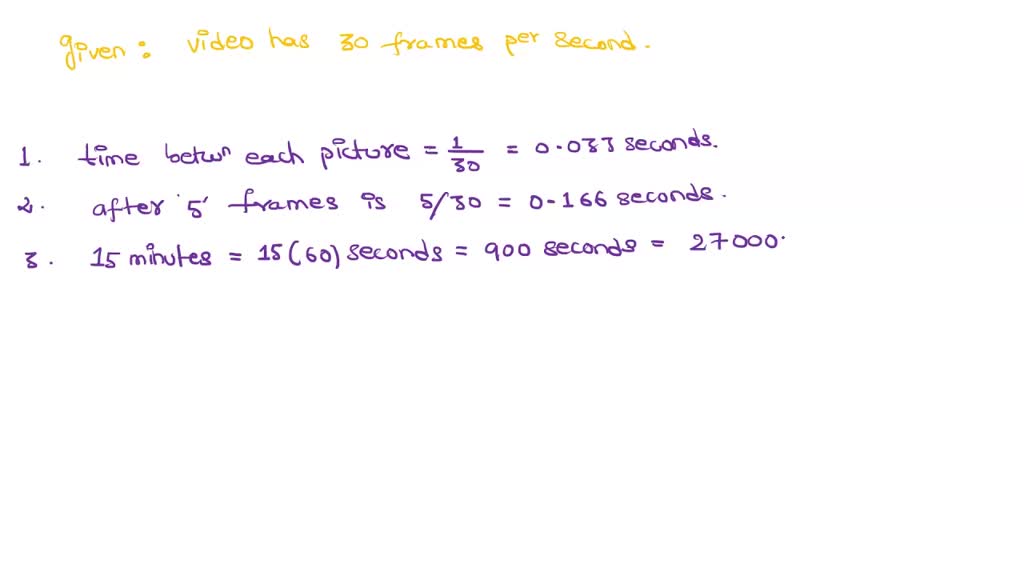 given: video has 30 frames per second.
1. time betwn each picture = 1/30 = 0.033 seconds.
2. after '5' frames is 5/30 = 0-166 seconds.
3. 15 minutes = 15(60) seconds = 900 seconds = 27000.